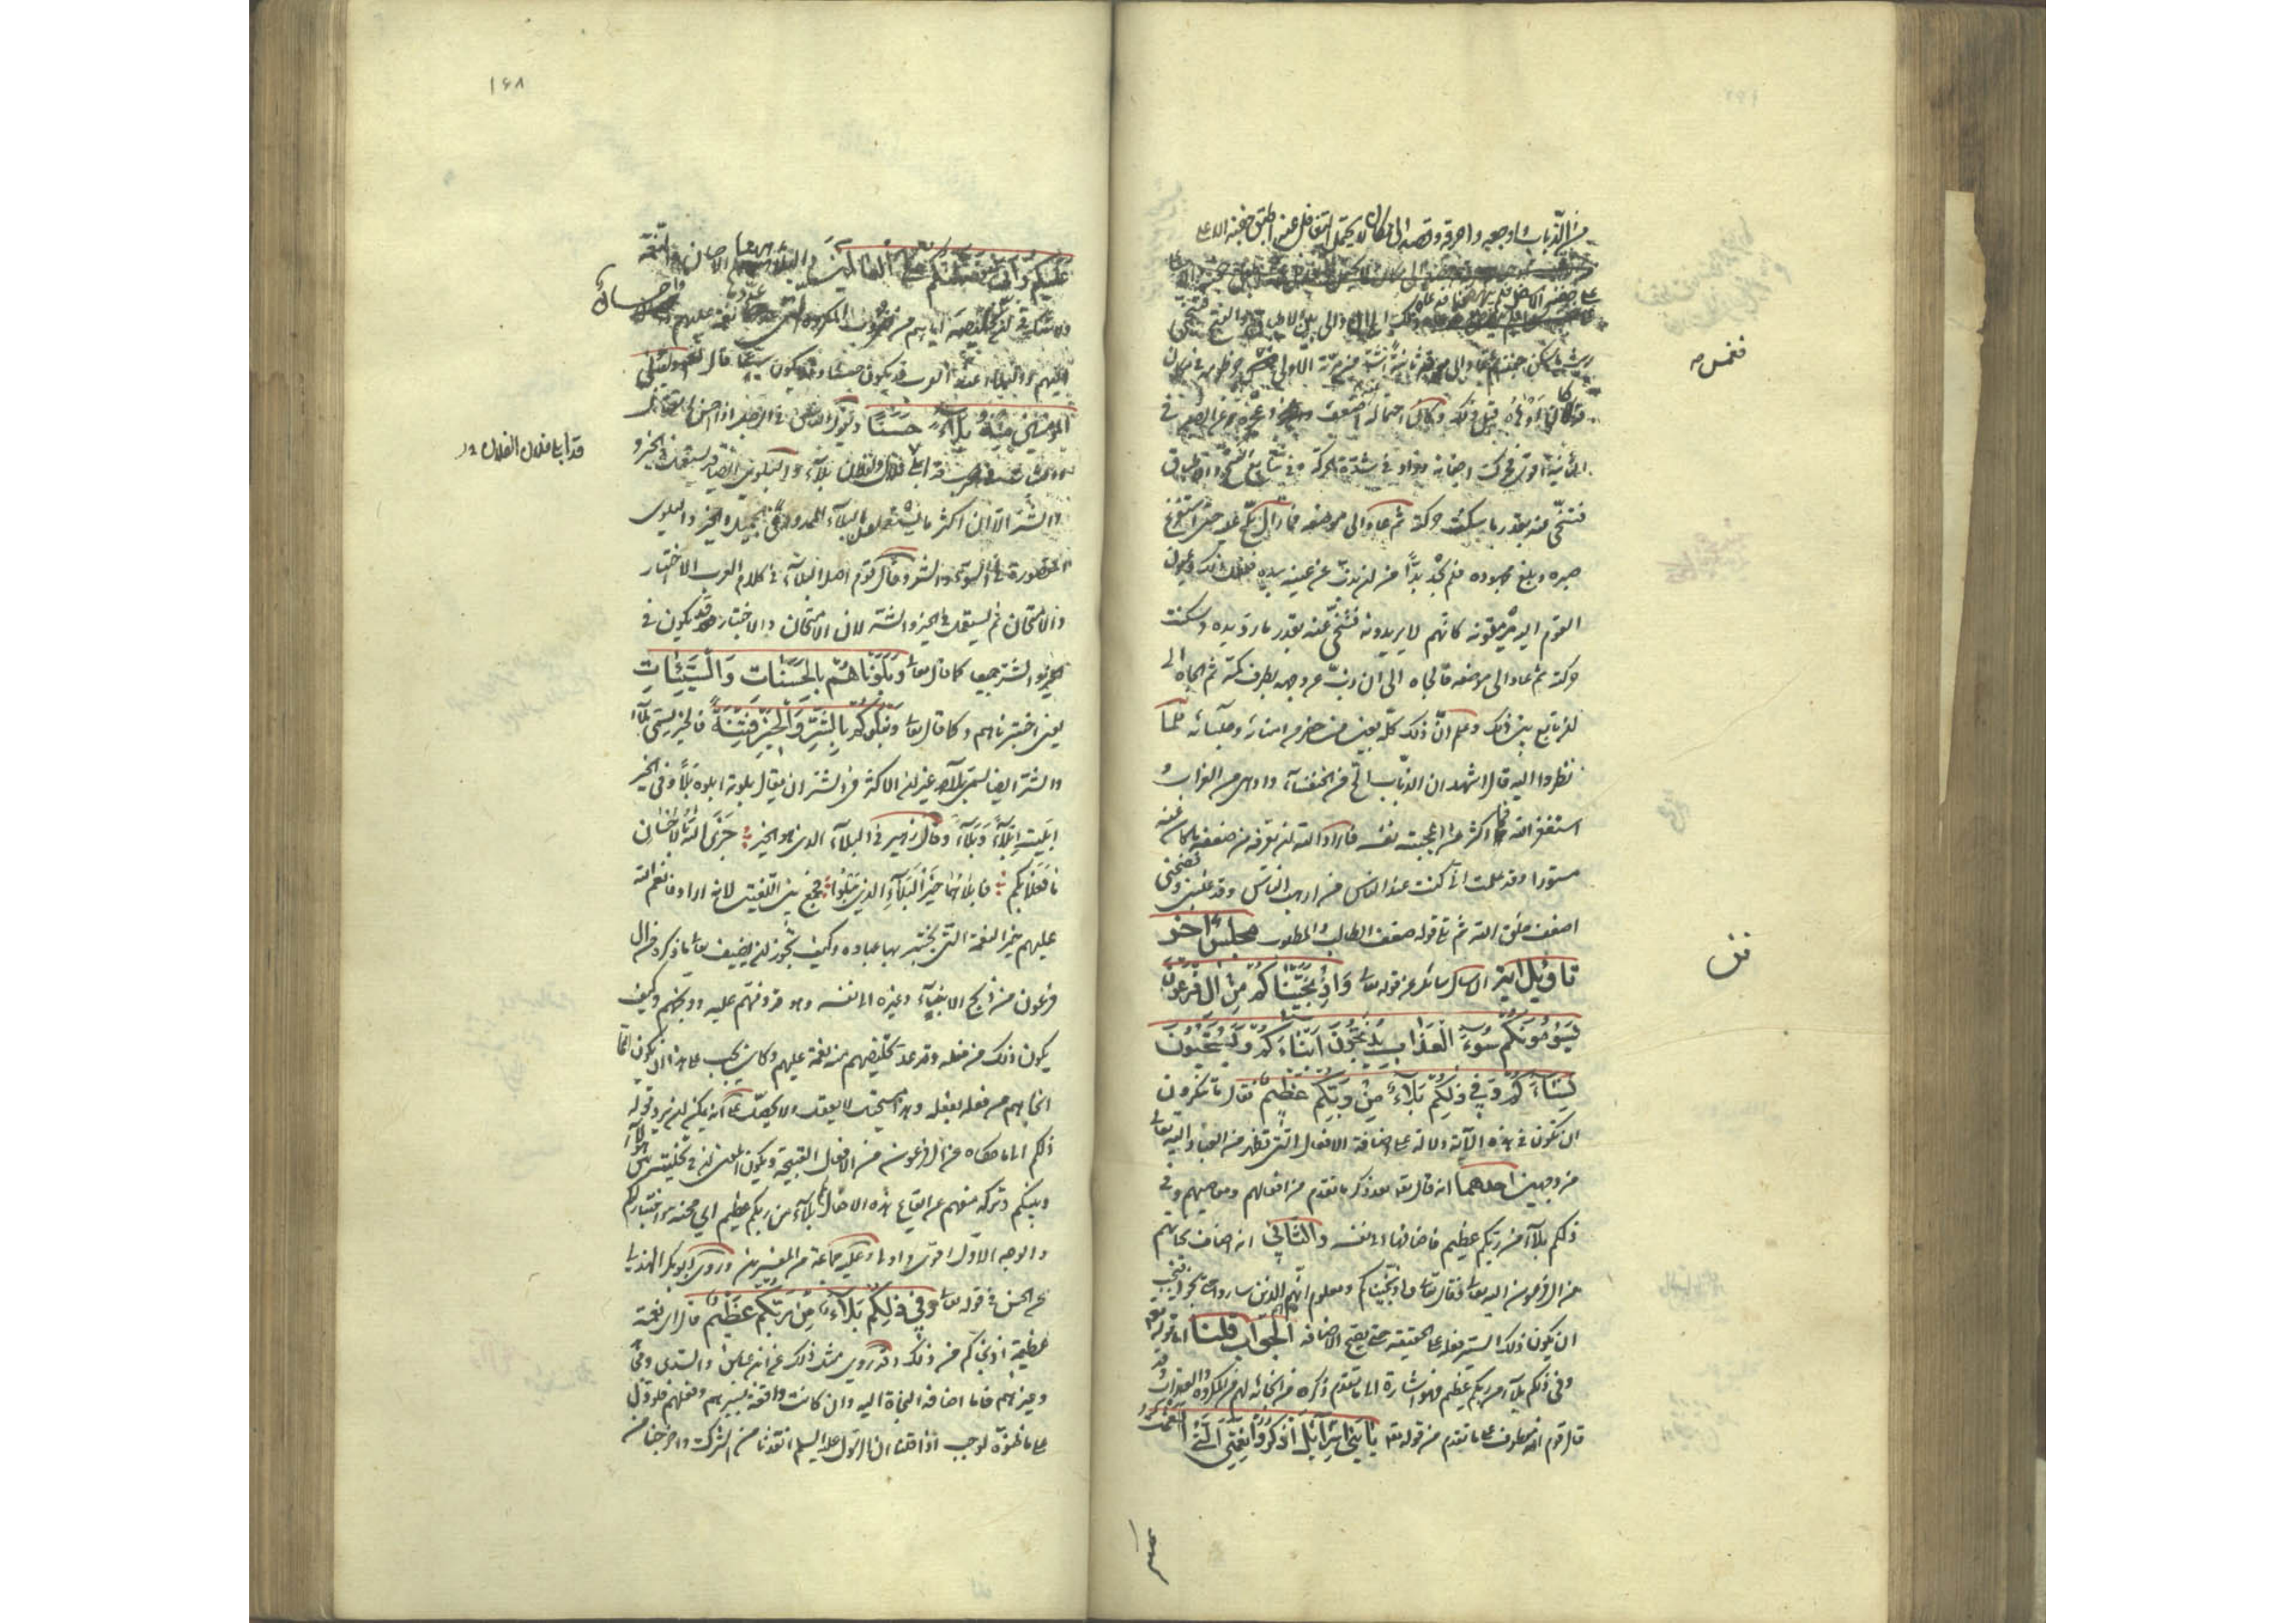 من الذباب واوجعه واحرقه وقصد الى مكان لا يحتمل التغافل عنه اطبق جفنه الاعلى
على جفنه الاسفل فلم ينهض
ذلك الى ان والى بين الاطباق والفتح فتنحى
ريثما سكن جفنه ثم عاد الى موقه ثانية اشد من مرته الاولى فغمس خرطومه في مكان
قد كان اوهاه قبل ذلك وكان احتماله اضعف وعجزه عن الصبر في
الثانية اقوى فحرك اجفانه وزاد في شدة الحركة وفي تتابع الفتح والاطباق
فتنحى عنه بقدر ما سكنت حركته ثم عاد الى موضعه فما زال يلح عليه حتى استفرغ
صبره وبلغ مجهوده فلم يجد بدا من ان يذب عن عينه بيده ففعل ذلك وعيون
القوم اليه يرمقونه كانهم لا يريدونه فتنحى عنه بقدر ما رد يده وسكنت
حركته ثم عاد الى موضعه فالجاه الى ان ذب عن وجهه بطرف كمه ثم الجاه الى
ان تابع بين ذلك وعلم ان ذلك كله بعين من حضره من امنائه وجلسائه فلما
نظروا اليه قال اشهد ان الذباب الح من الخنفساء وازهى من الغراب و
استغفر الله فما اكثر من اعجبته نفسه فاراد الله ان يعرفه من ضعفه ما كان عنه
مستورا وقد علمت اني كنت عند الناس من ارهب الناس وقد غلبني وفضحني
اضعف خلق الله ثم تلا قوله ضعف الطالب والمطلوب مجلس اخر
تاويل اية ان سال سائل عن قوله تعالى وَاِذْ نَجَّيْنَاكُمْ مِنْ الِ فِرْعَوْنَ
يَسُومُونَكُمْ سُوءَ الْعَذَابِ يُذَبِّحُونَ اَبْنَاءَكُمْ وَيَسْتَحْيُونَ
نِسَاءَكُمْ وَفِي ذلِكُمْ بَلَاءٌ مِنْ رَبِّكُمْ عَظِيمٌ فقال ما تنكرون
ان تكون في هذه الآية دلالة على اضافة الافعال التي تظهر من العباد اليه تعالى
من وجهين احدهما انه قال تعالى بعد ذكر ما تقدم من افعالهم ومعاصيهم وفي
ذلكم بلاء من ربكم عظيم فاضافها الى نفسه والثاني انه اضاف نجاتهم
من ال فرعون اليه تعالى فقال تعالى واذ نجيناكم ومعلوم انهم الذين ساروا حتى نجوا فيجب
ان يكون ذلك السير فعله على الحقيقة حتى تصح الاضافة الجواب قلنا اما قوله تعالى
وفي ذلكم بلاء من ربكم عظيم فهو اشارة الى ما تقدم ذكره من انجائه لهم من المكروه والعذاب وقد
قال قوم انه معطوف على ما تقدم من قوله تعالى يَا بَنِي اِسْرَائِيلَ اذْكُرُوا نِعْمَتِيَ الَّتِي اَنْعَمْتُ
فغمس
١٤٨
عَلَيْكُمْ وَاَنِّي فَضَّلْتُكُمْ عَلَى الْعَالَمِينَ والبلاء هيهنا الاحسان والنعمة
ولا شك في ان تخليصه اياهم من ضروب المكروه التي عددها نعمة عليهم واحسان
اليهم والبلاء عند العرب قد يكون حسنا وقد يكون سيئا قال تعالى وَلِيُبْلِيَ
الْمُؤْمِنِينَ مِنْهُ بَلَاءً حَسَنًا ويقول الناس في الرجل اذا احسن القتال
والثبات في الحرب قد ابلى فلان ولفلان بلاء والبلوى ايضا قد يستعمل في الخير و
الشر الا ان اكثر ما يستعملون البلاء الممدود في الجميل والخير والبلوى
المقصورة في السوء والشر وقال قوم اصل البلاء في كلام العرب الاختبار
والامتحان ثم يستعمل في الخير والشر لان الامتحان والاختبار قد يكون في
الخير والشر جميعا كما قال تعالى وَبَلَوْنَاهُمْ بِالْحَسَنَاتِ وَالسَّيِّئَاتِ
يعني اختبرناهم وكما قال تعالى وَنَبْلُوكُمْ بِالشَّرِّ وَالْخَيْرِ فِتْنَةً فالخير يسمى بلاء
والشر ايضا يسمى بلاء غير ان الاكثر في الشر ان يقال بلوته ابلوه بلاء وفي الخير
ابليته ابلاء وبلاء وقال زهير في البلاء الذي هو الخير جَزَى اللهُ بِالاِحْسَانِ
مَا فَعَلَا بِكُمْ فابلاهما خَيْرَ البَلَاءِ الذي يَبْلُو فجمع بين اللغتين لانه اراد فانعم الله
عليهم خير النعمة التي يختبر بها عباده وكيف يجوز ان يضيف تعالى ما ذكره من ال
فرعون من ذبح الابناء وغيره الى نفسه وهو قد ذمهم عليه ووبخهم وكيف
يكون ذلك من فعله وقد عد تخليصهم منه نعمة عليهم وكان يجب على هذا ان يكون انما
انجاهم من فعله بفعله وهذا مستحيل لا يعقل ولا يحصل على انه يمكن ان يرد قوله
ذلكم الى ما حكاه عن ال فرعون من الافعال القبيحة ويكون المعنى ان في تخليته بين هولاء
وبينكم وتركه منعهم عن ايقاع هذه الافعال بلاء من ربكم عظيم اي محنة واختبار لكم
والوجه الاول اقوى واولى وعليه جماعة من المفسرين وروى ابو بكر الهذلي
عن الحسن في قوله تعالى وَفِي ذلِكُمْ بَلَاءٌ مِنْ رَبِّكُمْ عَظِيمٌ قال اي نعمة
عظيمة اذ نجاكم من ذلك وقد روي مثل ذلك عن ابن عباس والسدي ومجاهد
وغيرهم فاما اضافة النجاة اليه وان كانت واقعة بسيرهم وفعلهم فلو دل
على ما ظنوه لوجب اذا قلنا ان الرسول عليه السلم انقذنا من الشرك واخرجنا من
قد ابلى فلان ولفلان